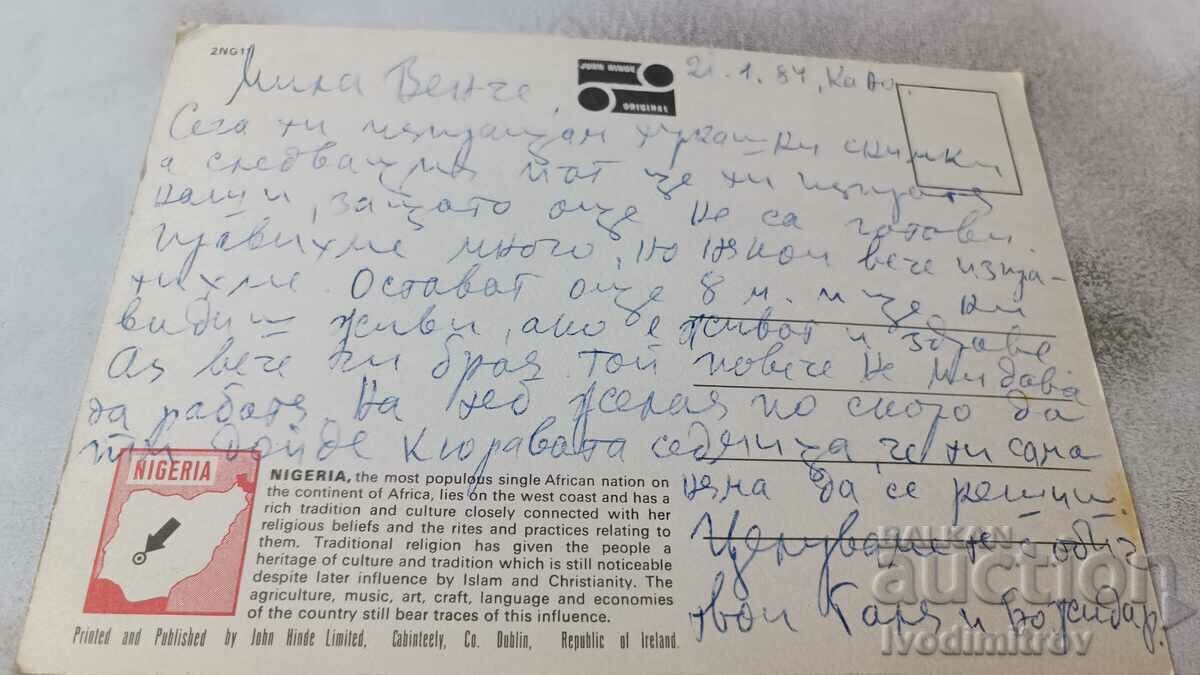 2NG11
JOHN HINDE
ORIGINAL
21.1.84, Кано.
Мила Венче,
Сега ти изпращам снимки
а следващия път ще ти изпратя
наши, защото още не са готови.
Правихме много, но някои вече изпра-
тихме. Остават още 8 м. и ще ни
видиш живи, ако е живот и здраве
Аз вече ги броя. Той повече не ми дава
да работя. На теб желая по скоро да
ти дойде седмица, че ти сама
няма да се решиш.
Целуваме те с обич
твои Галя и Божидар.
NIGERIA
NIGERIA, the most populous single African nation on
the continent of Africa, lies on the west coast and has a
rich tradition and culture closely connected with her
religious beliefs and the rites and practices relating to
them. Traditional religion has given the people a
heritage of culture and tradition which is still noticeable
despite later influence by Islam and Christianity. The
agriculture, music, art, craft, language and economies
of the country still bear traces of this influence.
Printed and Published by John Hinde Limited, Cabinteely, Co. Dublin, Republic of Ireland.
BALKAN
auction
ivodimitrov